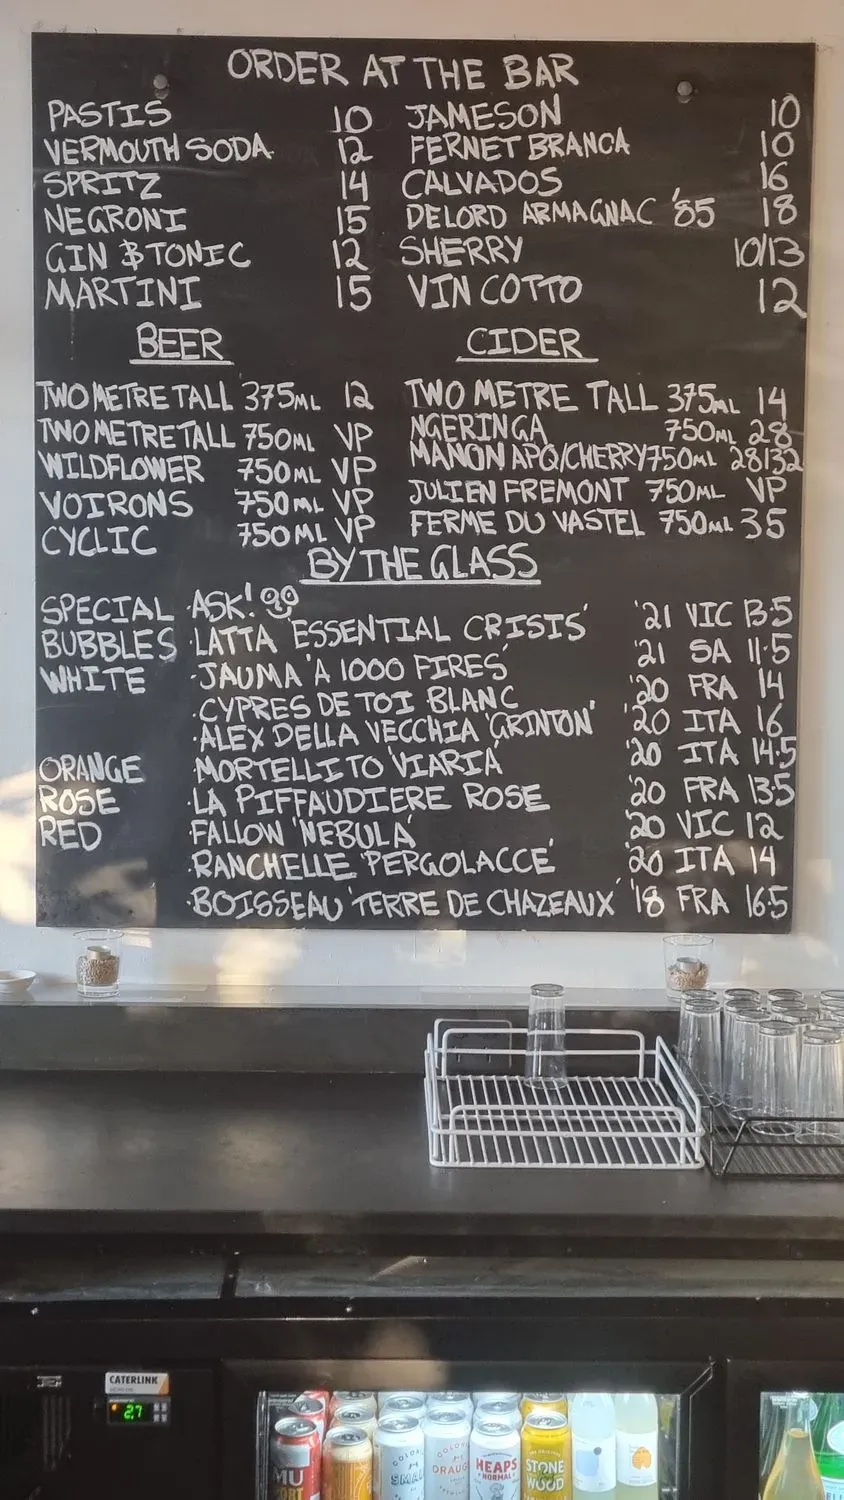 ORDER AT THE BAR
PASTIS 10 JAMESON 10
VERMOUTH SODA 12 FERNET BRANCA 10
SPRITZ 14 CALVADOS 16
NEGRONI 15 DELORD ARMAGNAC '85 18
GIN & TONIC 12 SHERRY 10/13
MARTINI 15 VIN COTTO 12
BEER CIDER
TWO METRE TALL 375ML 12 TWO METRE TALL 375ML 14
TWO METRE TALL 750ML VP NGERINGA 750ML 28
WILDFLOWER 750ML VP MANON APQ/CHERRY 750ML 28132
VOIRONS 750ML VP JULIEN FREMONT 750ML VP
CYCLIC 750ML VP FERME DU VASTEL 750ML 35
BY THE GLASS
SPECIAL ·ASK!
BUBBLES ·LATTA 'ESSENTIAL CRISIS' '21 VIC 13·5
WHITE ·JAUMA 'A 1000 FIRES' '21 SA 11·5
·CYPRES DE TOI BLANC '20 FRA 14
·ALEX DELLA VECCHIA 'GRINTON' '20 ITA 16
ORANGE ·MORTELLITO 'VIARIA' '20 ITA 14·5
ROSE ·LA PIFFAUDIERE ROSE '20 FRA 13·5
RED FALLOW 'NEBULA' '20 VIC 12
·RANCHELLE 'PERGOLACCE' '20 ITA 14
·BOISSEAU 'TERRE DE CHAZEAUX' '18 FRA 16·5
CATERLINK
2.7
HEAPS
NORMAL
STONE
WOOD